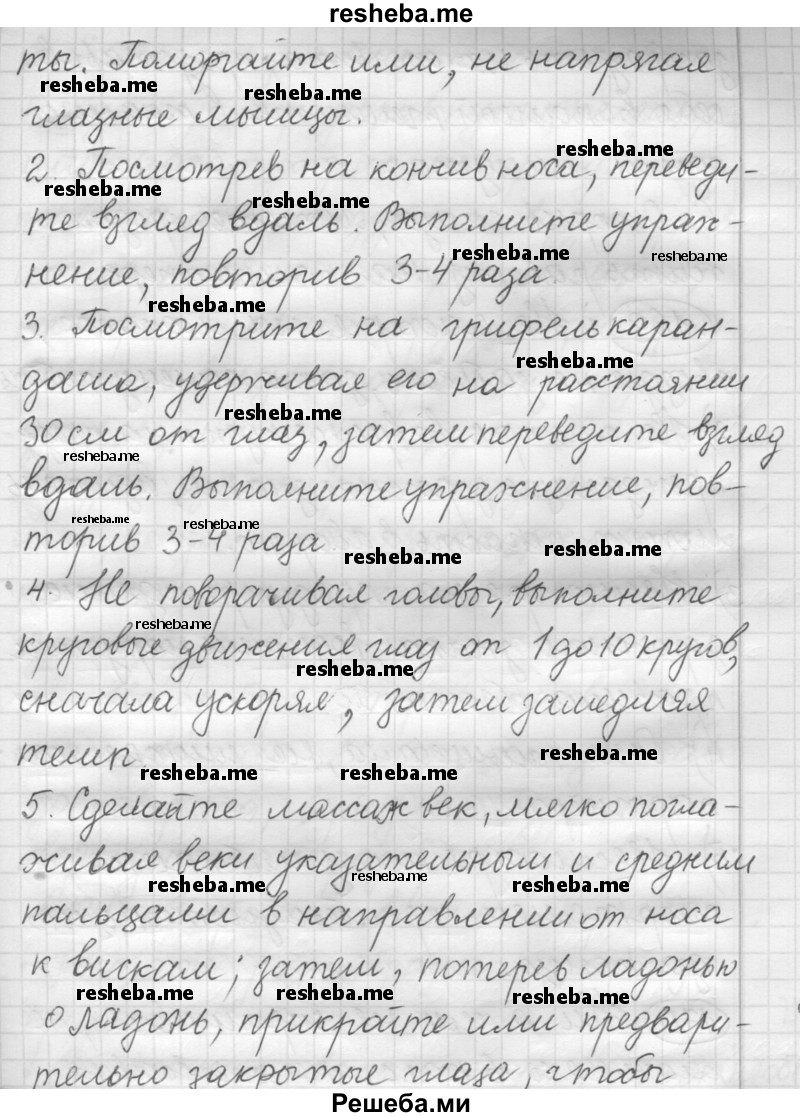 resheba.me
ты. Поморгайте ими, не напрягая
resheba.me resheba.me
глазные мышцы.
resheba.me
2. Посмотрев на кончив носа, переведи-
resheba.me resheba.me
те взгляд вдаль. Выполните упраж-
resheba.me resheba.me
нение, повторив 3-4 раза
resheba.me
3. Посмотрите на грифель каран-
resheba.me
даша, удерживая его на расстоянии
resheba.me
30 см от глаз, затем переведите взгляд
resheba.me
вдаль. Выполните упражнение, пов-
resheba.me resheba.me
торив 3-4 раза
resheba.me resheba.me
4. Не поворачивая головы, выполните
resheba.me
круговые движения глаз от 1 до 10 кругов,
resheba.me
сначала ускоряя, затем замедляя
темп.
resheba.me
resheba.me resheba.me
5. Сделайте массаж век, мягко погла-
живая веки указательным и средним
resheba.me resheba.me resheba.me
пальцами в направлении от носа
к вискам; затем, потерев ладонью
resheba.me resheba.me resheba.me
о ладонь, прикройте ими предвари-
тельно закрытые глаза, чтобы
Решеба.ми